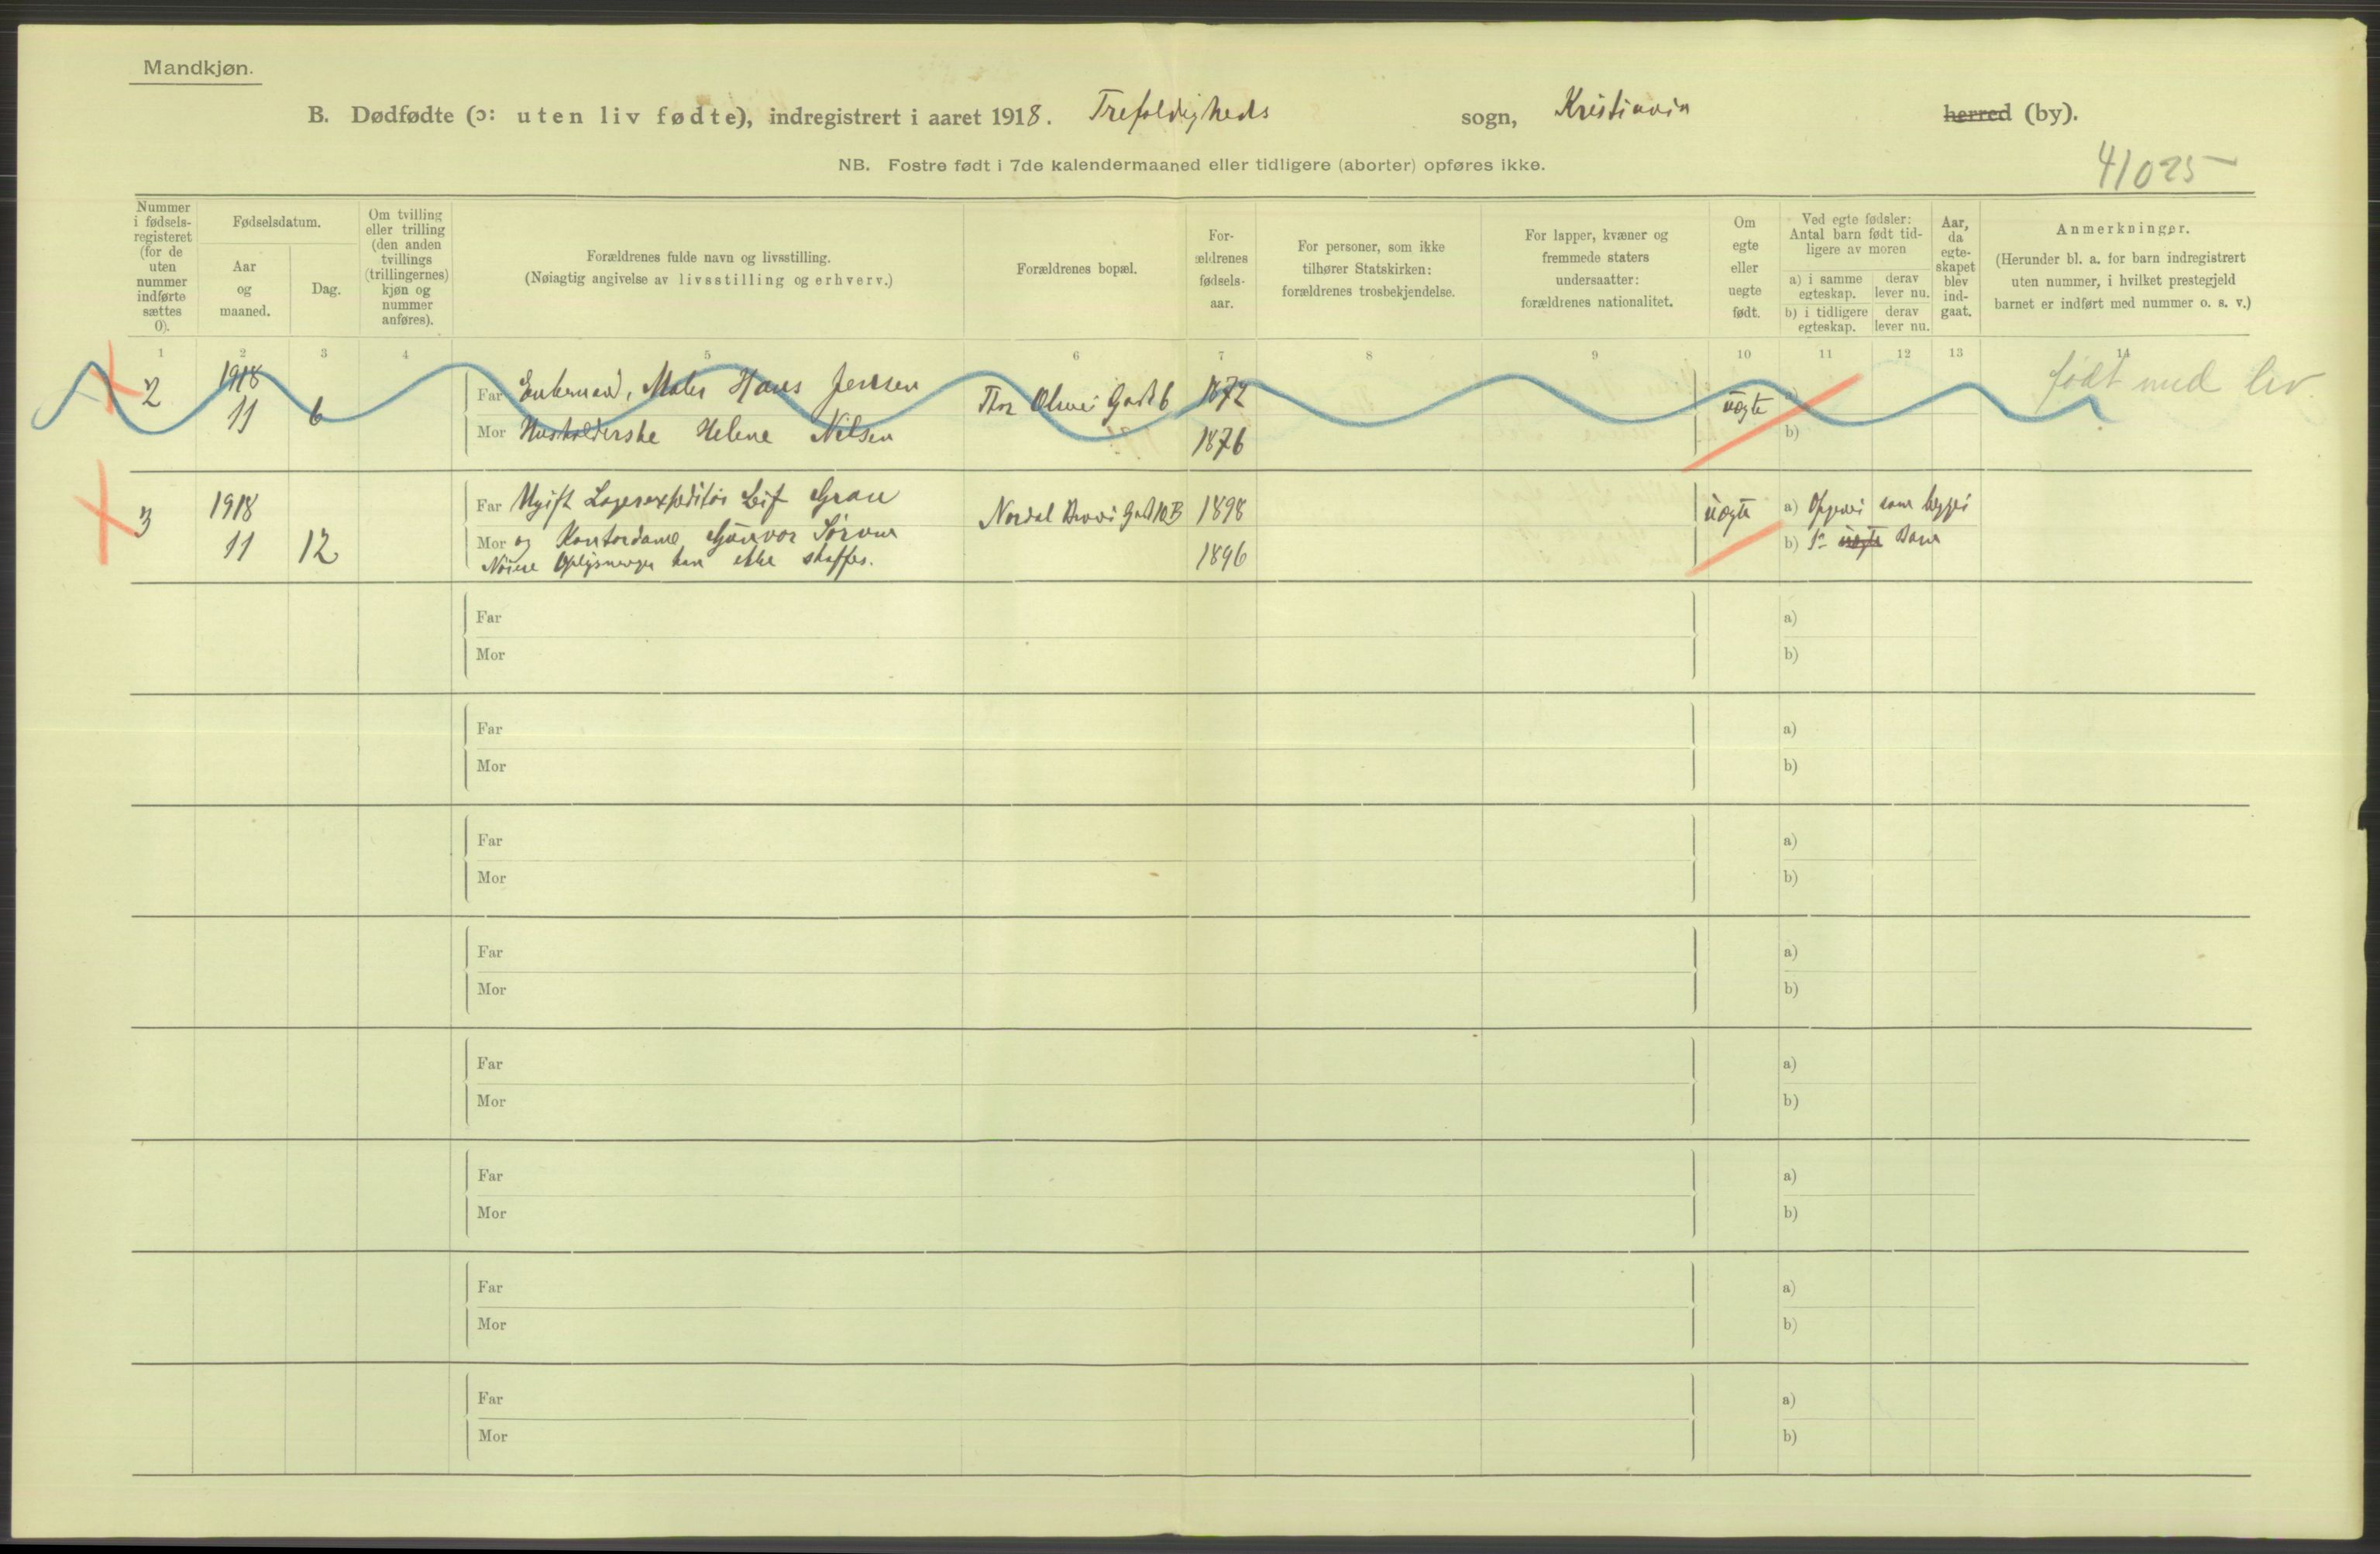 Mandkjøn.
B. Dødfødte (ɔ: uten liv fødte), indregistrert i aaret 1918. Trefoldigheds sogn, Kristiania herred (by).
NB. Fostre født i 7de kalendermaaned eller tidligere (aborter) opføres ikke.
41025
Nummer i fødsels-registeret (for de uten nummer indførte sættes 0).
Fødselsdatum.
Aar og maaned.
Dag.
Om tvilling eller trilling (den anden tvillings (trillingernes) kjøn og nummer anføres).
Forældrenes fulde navn og livsstilling.
(Nøiagtig angivelse av livsstilling og erhverv.)
Forældrenes bopæl.
For-ældrenes fødsels-aar.
For personer, som ikke tilhører Statskirken: forældrenes trosbekjendelse.
For lapper, kvæner og fremmede staters undersaatter: forældrenes nationalitet.
Om egte eller uegte født.
Ved egte fødsler: Antal barn født tid-ligere av moren
a) i samme egteskap.
derav lever nu.
b) i tidligere egteskap.
derav lever nu.
Aar, da egte-skapet blev ind-gaat.
Anmerkninger.
(Herunder bl. a. for barn indregistrert uten nummer, i hvilket prestegjeld barnet er indført med nummer o. s. v.)
1 2 3 4 5 6 7 8 9 10 11 12 13 14
2 1918 11 6
Far Enkemand, Maler Hans Jensen
Mor Husholderske Helene Nilsen
Thor Olsens Gade 6
1872
1876
uegte
a)
b)
født med liv
3 1918 11 12
Far Ugift Lagerexpeditør Leif Gran
Mor og Kontordame Gunvor
Nøiere Oplysninger kan ikke skaffes.
Nordal Bruns Gade 10 B
1898
1896
uegte
a) Opgives som begges
b) 1ste uegte Barn
Far
Mor
a)
b)
Far
Mor
a)
b)
Far
Mor
a)
b)
Far
Mor
a)
b)
Far
Mor
a)
b)
Far
Mor
a)
b)
Far
Mor
a)
b)
Far
Mor
a)
b)